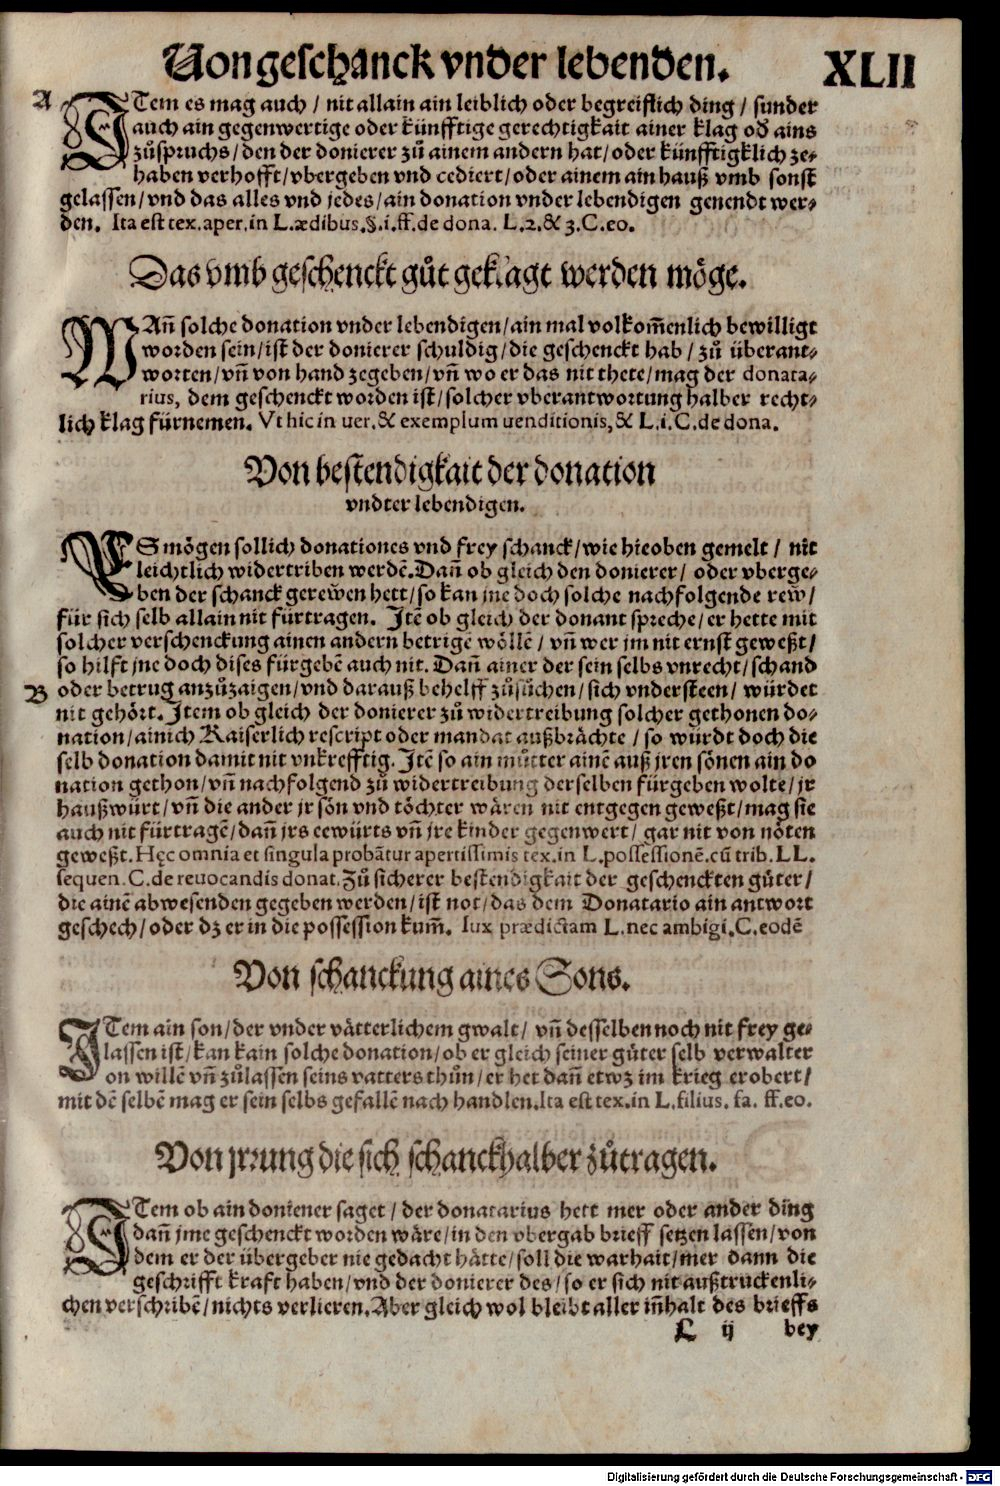 Von geschanck vnder lebenden. XLII
A
ITem es mag auch / nit allain ain leiblich oder begreiflich ding / sunder
auch ain gegenwertige oder künfftige gerechtigkait ainer klag od ains
zůspruchs / den der donierer zů ainem andern hat / oder künfftigklich ze-
haben verhofft / vbergeben vnd cediert / oder ainem ain hauß vmb sonst
gelassen / vnd das alles vnd jedes / ain donation vnder lebendigen genendt wer-
den. Ita est tex. aper. in L. ædibus. §. i. ff. de dona. L. 2. & 3. C. eo.
Das vmb geschenckt gůt geklagt werden möge.
WAñ solche donation vnder lebendigen / ain mal volkom̃enlich bewilligt
worden sein / ist der donierer schuldig / die geschenckt hab / zů überant-
worten / vñ von hand zegeben / vñ wo er das nit thete / mag der donata-
rius, dem geschenckt worden ist / solcher vberantwortung halber recht-
lich klag fürnemen. Vt hic in uer. & exemplum uenditionis, & L. i. C. de dona.
Von bestendigkait der donation
vndter lebendigen.
ES mögen sollich donationes vnd frey schanck / wie hieoben gemelt / nit
leichtlich widertriben werdẽ. Dañ ob gleich den donierer / oder vberge-
ben der schanck gerewen hett / so kan jne doch solche nachfolgende rew /
für sich selb allain nit fürtragen. Itẽ ob gleich der donant spreche / er hette mit
solcher verschenckung ainen andern betrigẽ wöllẽ / vñ wer jm nit ernst geweßt /
so hilft jne doch dises fürgebẽ auch nit. Dañ ainer der sein selbs vnrecht / schand
B
oder betrug anzůzaigen / vnd darauß behelff zůsůchen / sich vndersteen / würdet
nit gehört. Item ob gleich der donierer zů widertreibung solcher gethonen do-
nation / ainich Kaiserlich rescript oder mandat außbrächte / so würdt doch die
selb donation damit nit vnkrefftig. Itẽ so ain můtter ainẽ auß jren sönen ain do
nation gethon / vñ nachfolgend zů widertreibung derselben fürgeben wolte / jr
haußwürt / vñ die ander jr sön vnd töchter wären nit entgegen geweßt / mag sie
auch nit fürtragẽ / dañ jrs eewürts vñ jre kinder gegenwert / gar nit von nöten
geweßt. Hęc omnia et singula probãtur apertissimis tex. in L. possessionẽ. cũ trib. LL.
sequen. C. de reuocandis donat. Zů sicherer bestendigkait der geschenckten güter /
die ainẽ abwesenden gegeben werden / ist not / das dem Donatario ain antwort
geschech / oder dz er in die possession kum̃. Iux prædictam L. nec ambigi. C. eodẽ
Von schanckung aines Sons.
ITem ain son / der vnder vätterlichem gwalt / vñ desselben noch nit frey ge-
lassen ist / kan kain solche donation / ob er gleich seiner güter selb verwalter
on willẽ vñ zůlassen seins vatters thůn / er het dañ etwz im krieg erobert /
mit dẽ selbẽ mag er sein selbs gefallẽ nach handlen. Ita est tex. in L. filius. fa. ff. eo.
Von jrrung die sich schanckhalber zůtragen.
ITem ob ain donierer saget / der donatarius hett mer oder ander ding
dañ jme geschenckt worden wäre / in den vbergab brieff setzen lassen / von
dem er der übergeber nie gedacht hätte / soll die warhait / mer dann die
geschrifft kraft haben / vnd der donierer des / so er sich nit außtruckenli-
chen verschribẽ / nichts verlieren. Aber gleich wol bleibt aller iñhalt des brieffs
L ij bey
Digitalisierung gefördert durch die Deutsche Forschungsgemeinschaft - DFG